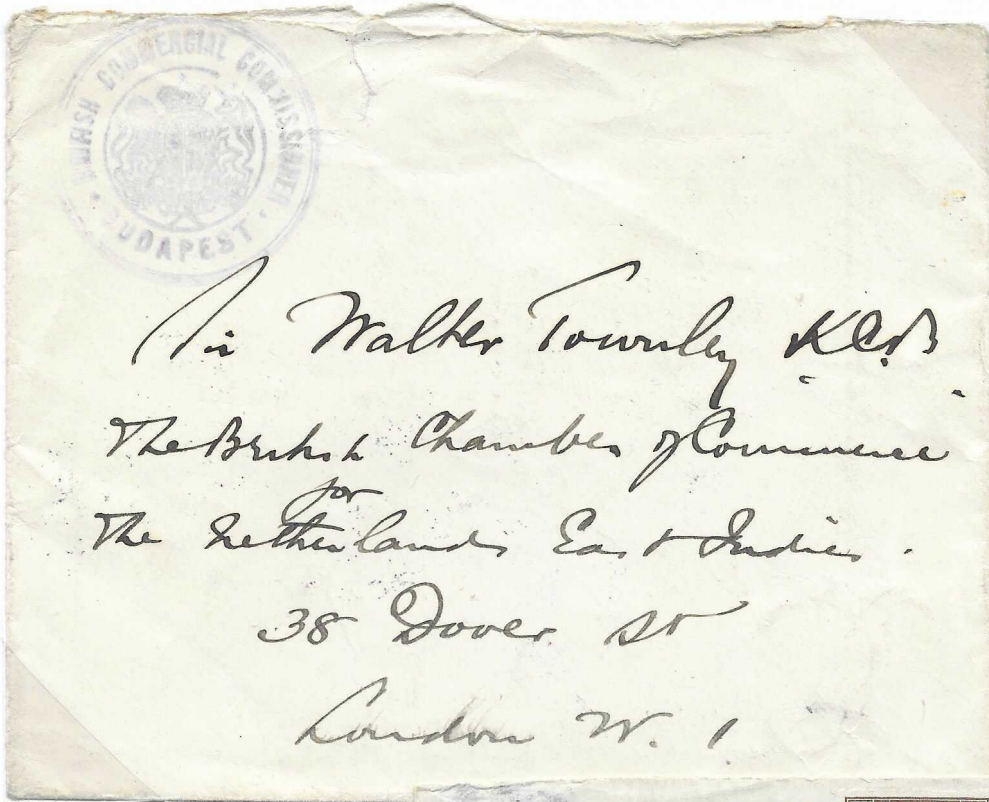 BRITISH COMMERCIAL COMMISSIONER
· BUDAPEST ·
Sir Walter Townley KCB.
The British Chamber of Commerce
for
The Netherlands East Indies.
38 Dover St
London W. 1